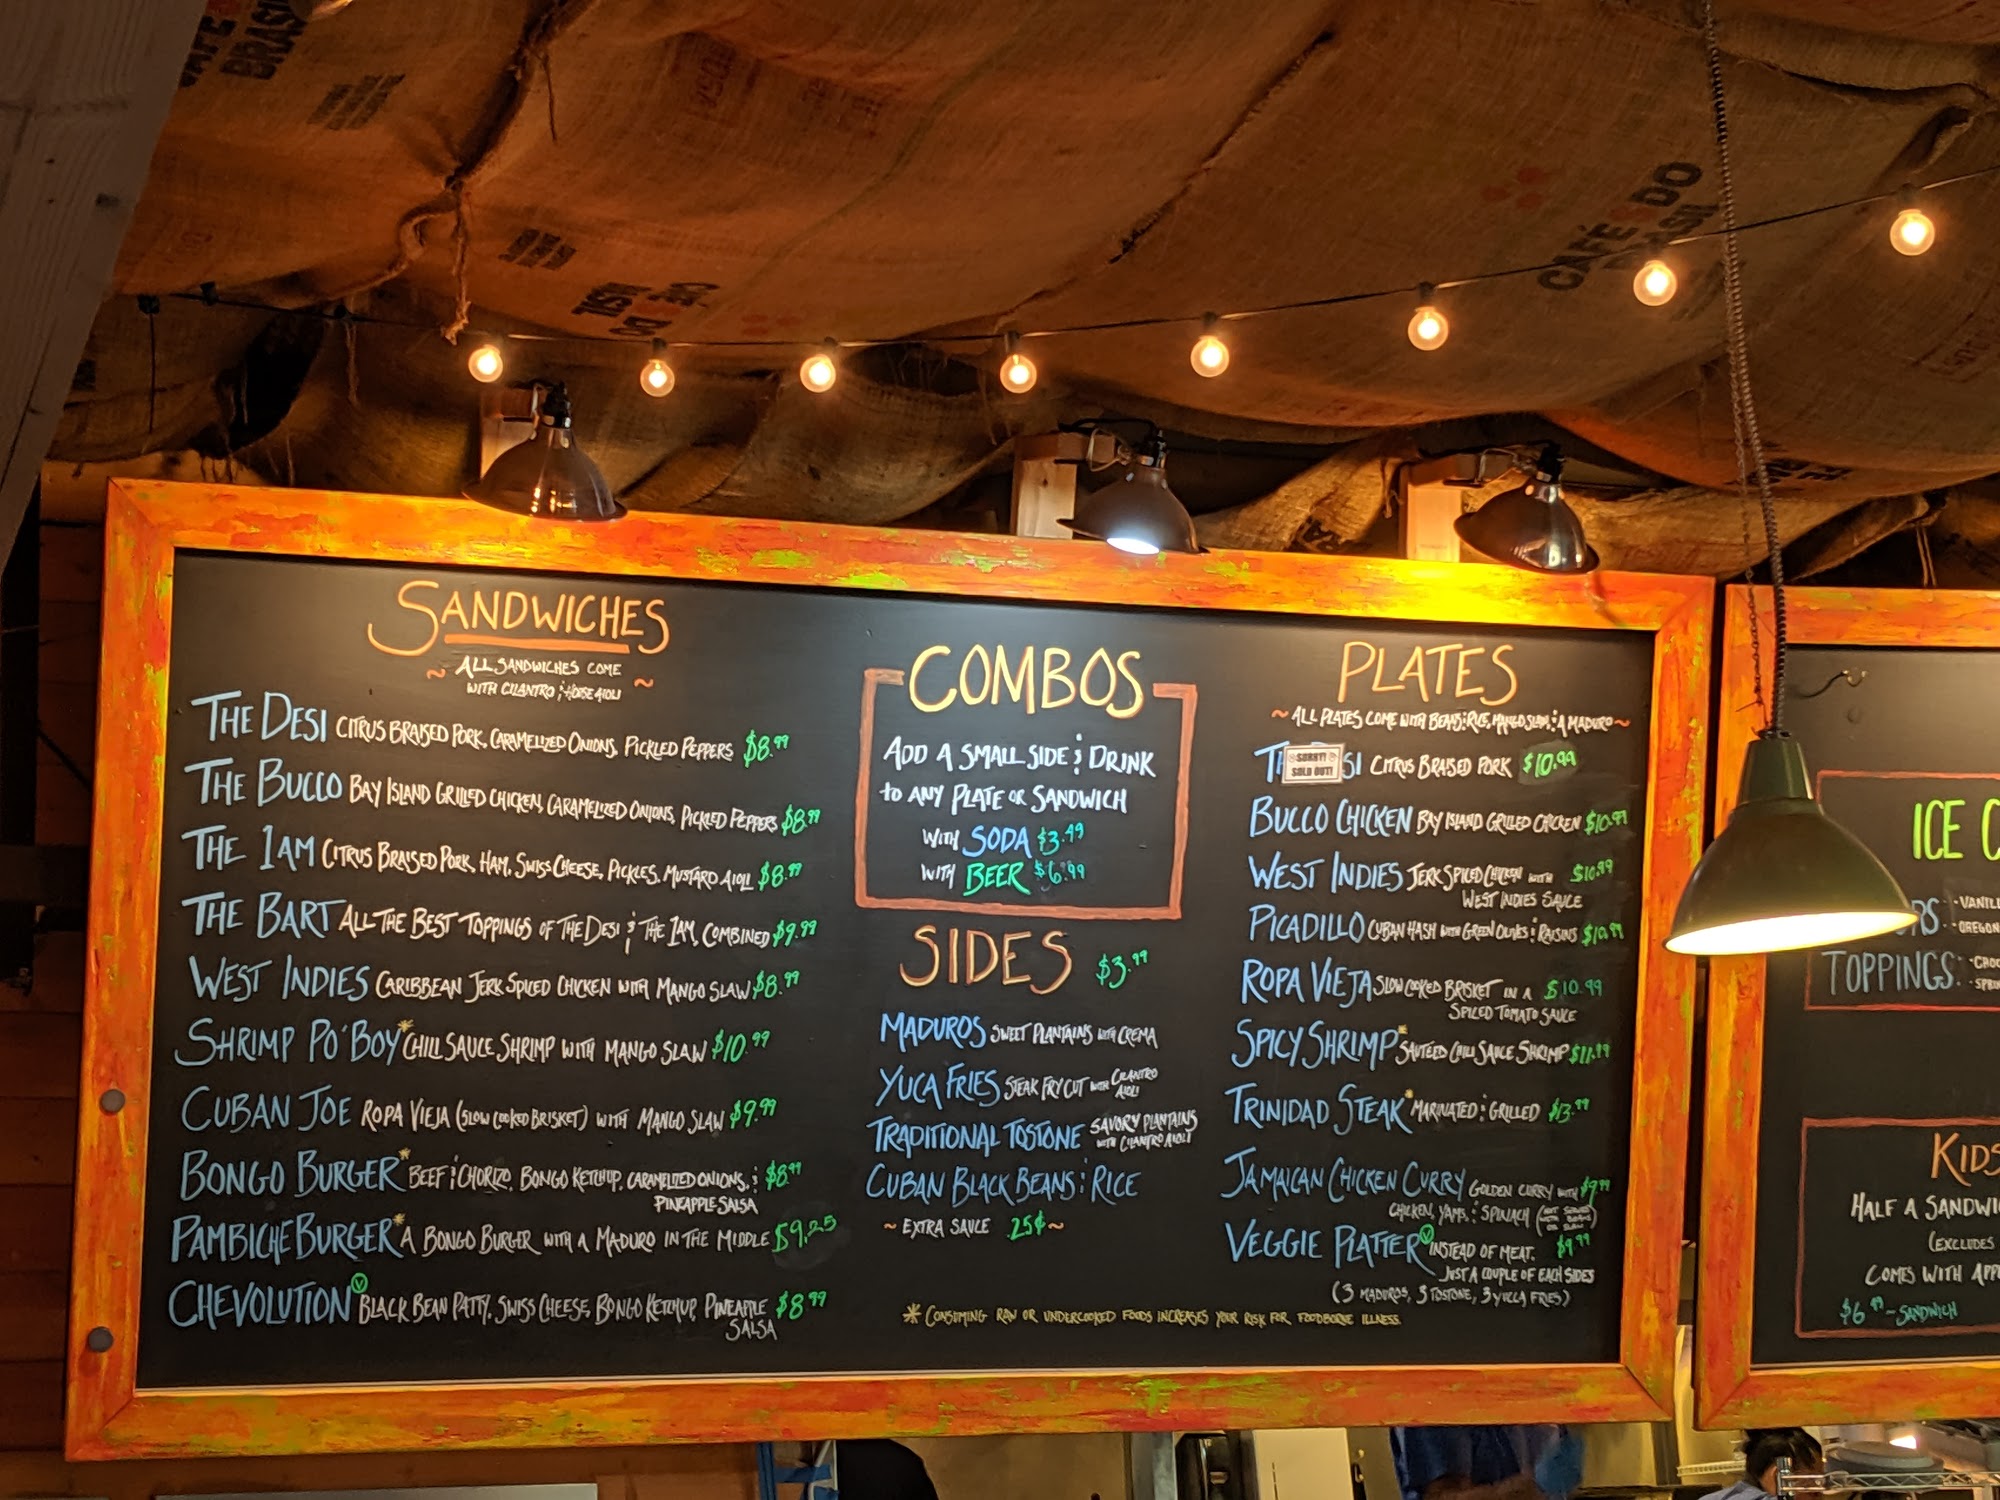 CAFÉ DO
BRASIL
SANDWICHES
~ ALL SANDWICHES COME ~
WITH CILANTRO & HOUSE AIOLI
THE DESI CITRUS BRAISED PORK, CARAMELIZED ONIONS, PICKLED PEPPERS $8.99
THE BUCCO BAY ISLAND GRILLED CHICKEN, CARAMELIZED ONIONS, PICKLED PEPPERS $8.99
THE 1AM CITRUS BRAISED PORK, HAM, SWISS CHEESE, PICKLES, MUSTARD AIOLI $8.99
THE BART ALL THE BEST TOPPINGS OF THE DESI & THE 1AM, COMBINED $9.99
WEST INDIES CARIBBEAN JERK SPICED CHICKEN WITH MANGO SLAW $8.99
SHRIMP PO'BOY* CHILI SAUCE SHRIMP WITH MANGO SLAW $10.99
CUBAN JOE ROPA VIEJA (SLOW COOKED BRISKET) WITH MANGO SLAW $9.99
BONGO BURGER* BEEF & CHORIZO, BONGO KETCHUP, CARAMELIZED ONIONS, & $8.99
PINEAPPLE SALSA
PAMBICHE BURGER* A BONGO BURGER WITH A MADURO IN THE MIDDLE $9.25
CHEVOLUTION Ⓥ BLACK BEAN PATTY, SWISS CHEESE, BONGO KETCHUP, PINEAPPLE $8.99
SALSA
COMBOS
ADD A SMALL SIDE & DRINK
TO ANY PLATE OR SANDWICH
WITH SODA $3.49
WITH BEER $6.99
SIDES $3.99
MADUROS SWEET PLANTAINS WITH CREMA
YUCA FRIES STEAK FRY CUT WITH CILANTRO
AIOLI
TRADITIONAL TOSTONE SAVORY PLANTAINS
WITH CILANTRO AIOLI
CUBAN BLACK BEANS & RICE
~ EXTRA SAUCE .25¢ ~
PLATES
~ ALL PLATES COME WITH BEANS & RICE, MANGO SLAW, & A MADURO ~
SORRY!
SOLD OUT!
SI CITRUS BRAISED PORK $10.99
BUCCO CHICKEN BAY ISLAND GRILLED CHICKEN $10.99
WEST INDIES JERK SPICED CHICKEN WITH $10.99
WEST INDIES SAUCE
PICADILLO CUBAN HASH WITH GREEN OLIVES & RAISINS $10.99
ROPA VIEJA SLOW COOKED BRISKET IN A $10.99
SPICED TOMATO SAUCE
SPICY SHRIMP* SAUTEED CHILI SAUCE SHRIMP $11.99
TRINIDAD STEAK* MARINATED & GRILLED $13.99
JAMAICAN CHICKEN CURRY GOLDEN CURRY WITH $9.99
CHICKEN, YAMS, & SPINACH (NOT SERVED
WITH BEANS
OR SLAW)
VEGGIE PLATTER Ⓥ INSTEAD OF MEAT, $9.99
JUST A COUPLE OF EACH SIDES
(3 MADUROS, 3 TOSTONE, 3 YUCA FRIES)
* CONSUMING RAW OR UNDERCOOKED FOODS INCREASES YOUR RISK FOR FOODBORNE ILLNESS.
ICE C
RS: •VANILL
•OREGON
TOPPINGS: •CHOC
•SPRIN
KIDS
HALF A SANDWIC
(EXCLUDES
COMES WITH APP
$6.99 ~ SANDWICH